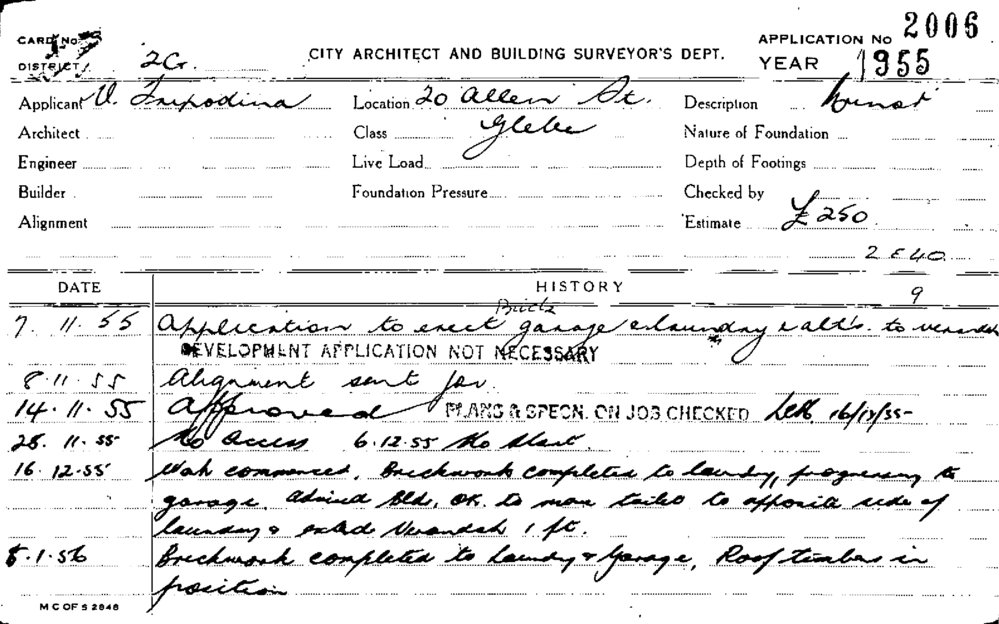 CARD No
DISTRICT 2G.
CITY ARCHITECT AND BUILDING SURVEYOR'S DEPT.
APPLICATION No 2006
YEAR 1955
Applicant V. Tripodina Location 20 Allen St. Description
Architect Class Glebe Nature of Foundation
Engineer Live Load Depth of Footings
Builder Foundation Pressure Checked by
Alignment Estimate £250
2 E 40
DATE HISTORY 9
Brick
7. 11. 55 Application to erect garage & laundry & alt's. to verandah
DEVELOPMENT APPLICATION NOT NECESSARY
8·11·55 Alignment sent for.
14·11·55 Approved PLANS & SPECN. ON JOB CHECKED 16/12/55
28. 11. 55 No Access 6.12.55 No Start.
16. 12.55 Work commenced. Brickwork completed to laundry, progressing to
garage. Advised Bld. OK. to move toilet to opposite side of
laundry & extend Verandah 1 ft.
5.1.56 Brickwork completed to Laundry & Garage, Roof timbers in
position
M C OF S 2848